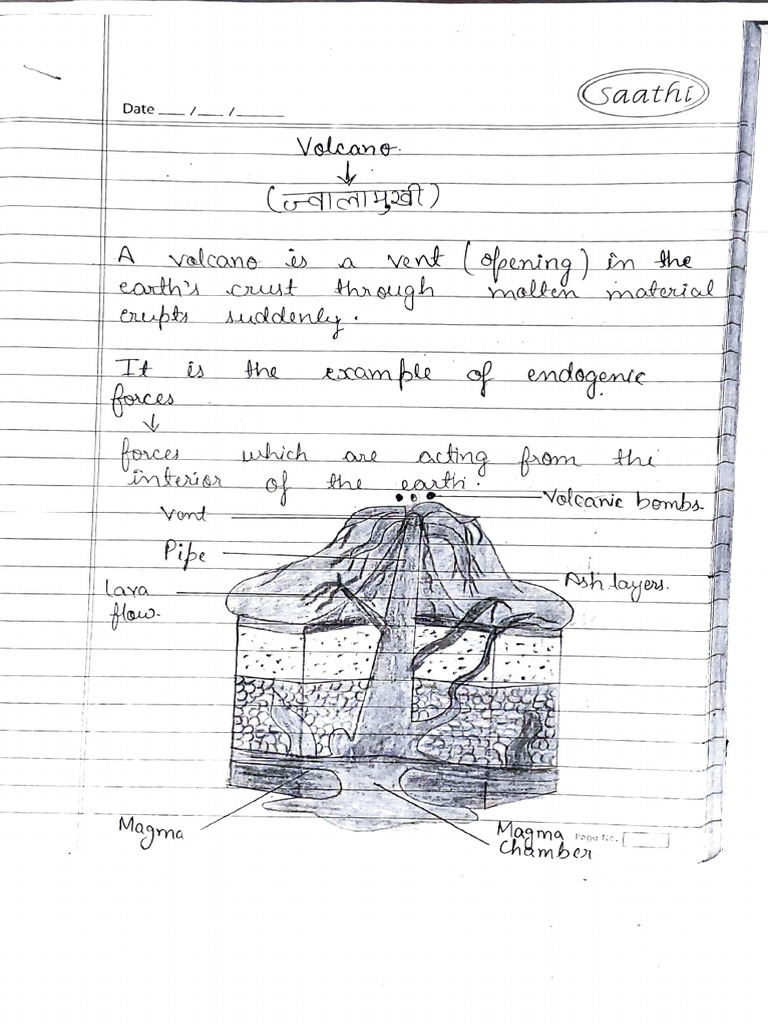 Saathi
Date __/__/____
Volcano.
↓
(ज्वालामुखी)
A volcano is a vent (opening) in the
earth's crust through molten material
erupts suddenly.
It is the example of endogenic
forces.
↓
forces which are acting from the
interior of the earth.
Volcanic bombs.
Vent
Pipe
Lava
flow.
Ash layers.
Magma
Magma
Chamber
Page No.